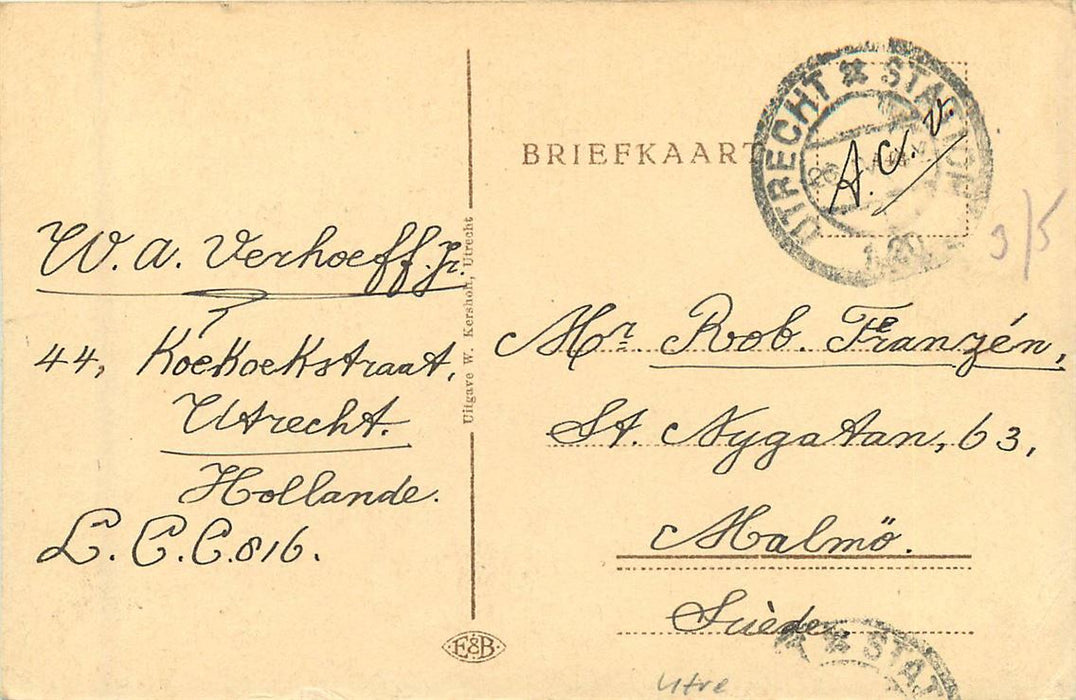 BRIEFKAART
UTRECHT ✻ STATION
26
1.20
A.c.v.
3/5
W. A. Verhoeff. Jr.
44, Koekoekstraat,
Utrecht.
Hollande.
L.C.C.816.
Uitgave W. Kershoff, Utrecht
Mr. Rob. Franzén,
St. Nygatan, 63,
Malmö.
Suède.
E&B
STAT
Utre